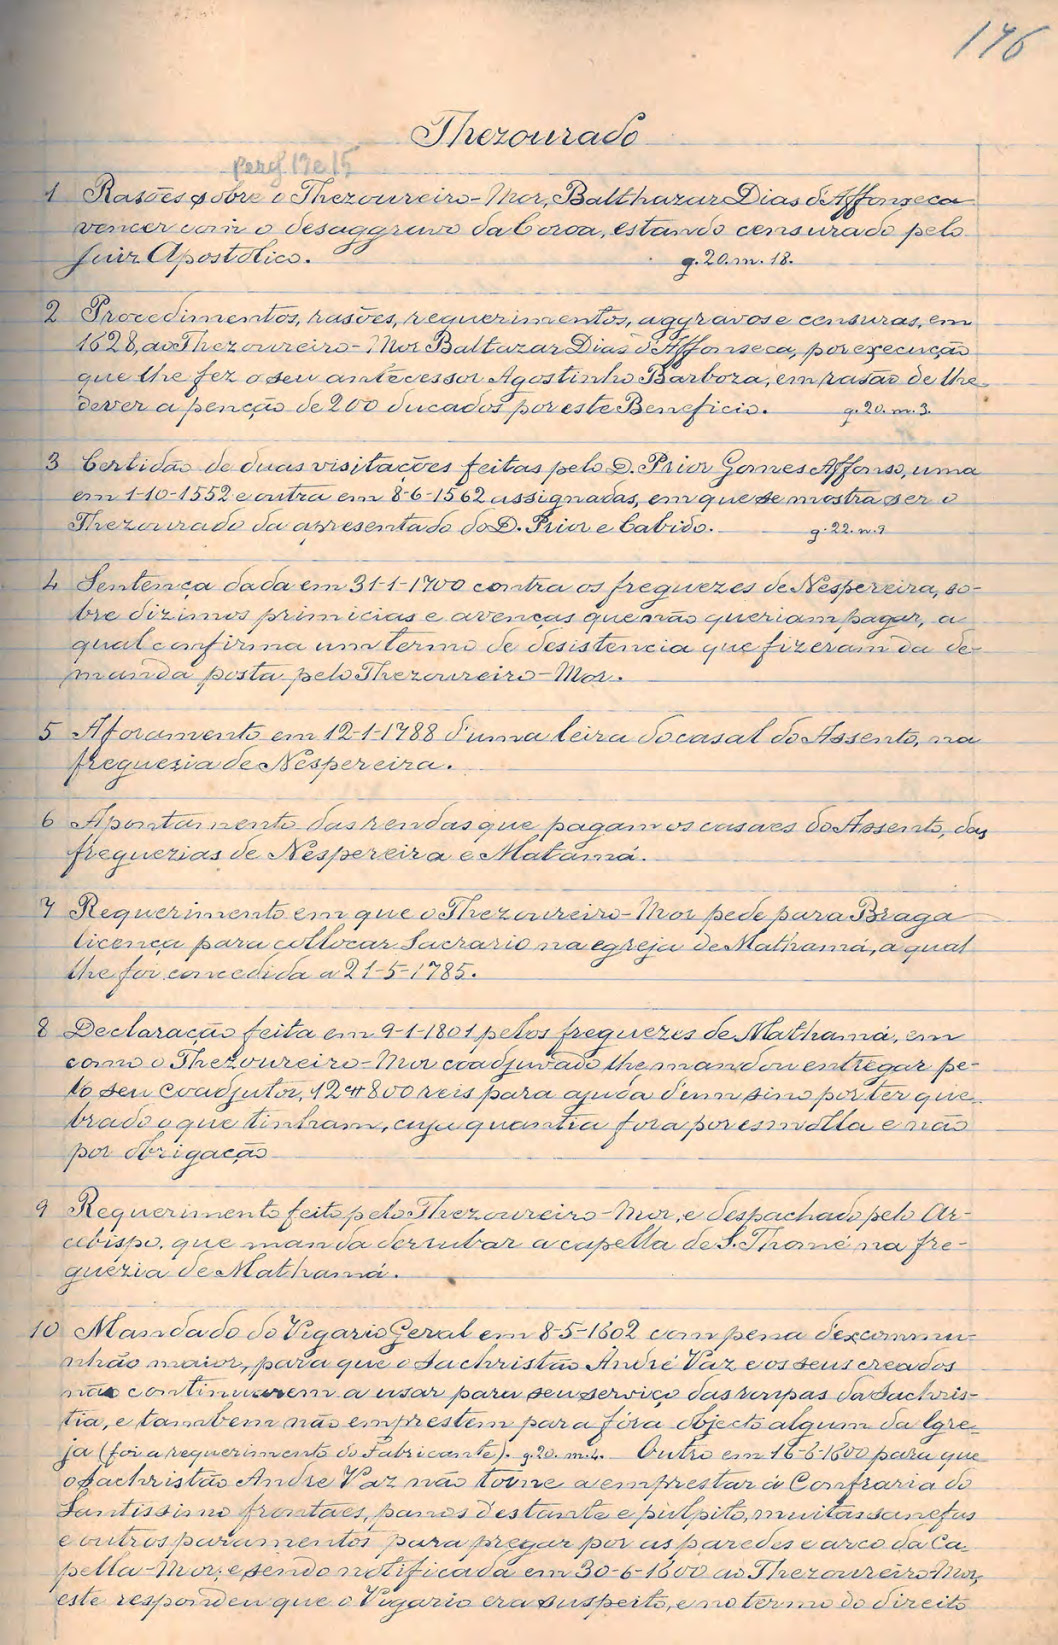 176
Thezourado
perg. 17 e 15
1 Rasões sobre o Thezoureiro-Mor, Balthazar Dias d'Affonseca
vencer com o desaggravo da Coroa, estando censurado pelo
Juiz Apostolico. g. 20. m. 18.
2 Procedimentos, rasões, requerimentos, aggravos e censuras, em
1628, ao Thezoureiro-Mor Baltazar Dias d'Affonseca, por execução
que lhe fez o seu antecessor Agostinho Barboza, em rasão de lhe
dever a penção de 200 ducados por este Beneficio. g. 20. m. 3.
3 Certidão de duas visitações feitas pelo D. Prior Gomes Affonso, uma
em 1-10-1552 e outra em 8-6-1562 assignadas, em que se mostra ser o
Thezourado da apresentado do D. Prior e Cabido. g. 22. n. 9
4 Sentença dada em 31-1-1700 contra os freguezes de Nespereira, so-
bre dizimos primicias e avenças que não queriam pagar, a
qual confirma um termo de desistencia que fizeram da de-
manda posta pelo Thezoureiro-Mor.
5 Aforamento em 12-1-1788 d'uma leira do casal do Assento, na
freguezia de Nespereira.
6 Apontamento das rendas que pagam os casaes do Assento, das
freguezias de Nespereira e Matamá.
7 Requerimento em que o Thezoureiro-Mor pede para Braga
licença para collocar Sacrario na egreja de Mathamá, a qual
lhe foi concedida a 21-5-1785.
8 Declaração feita em 9-1-1801 pelos freguezes de Mathamá, em
como o Thezoureiro-Mor coadjuvado lhe mandou entregar pe-
lo seu coadjutor, 12$800 reis para ajuda d'um sino por ter que-
brado o que tinham, cuja quantia fora por esmolla e não
por obrigação
9 Requerimento feito pelo Thezoureiro-Mor, e despachado pelo Ar-
cebispo, que manda derrubar a capella de S. Thomé na fre-
guezia de Mathamá.
10 Mandado do Vigario Geral em 8-5-1602 com pena d'excommu-
nhão maior, para que o Sachristão André Vaz e os seus creados
não continuarem a usar para seu serviço das roupas da Sachris-
tia, e tambem não emprestem para fóra objecto algum da Igre-
ja (foi a requerimento do Fabricante). g. 20. m. 4. Outro em 16-6-1600 para que
o Sachristão Andre Vaz não torne a emprestar á Confraria do
Santissimo frontaes, panos d'estante e pulpito, muitas sanefas
e outros paramentos para pregar por as paredes e arco da Ca-
pella-Mor; e sendo notificada em 30-6-1600 ao Thezoureiro-Mor,
este respondeu que o Vigario era suspeito, e no termo do direito